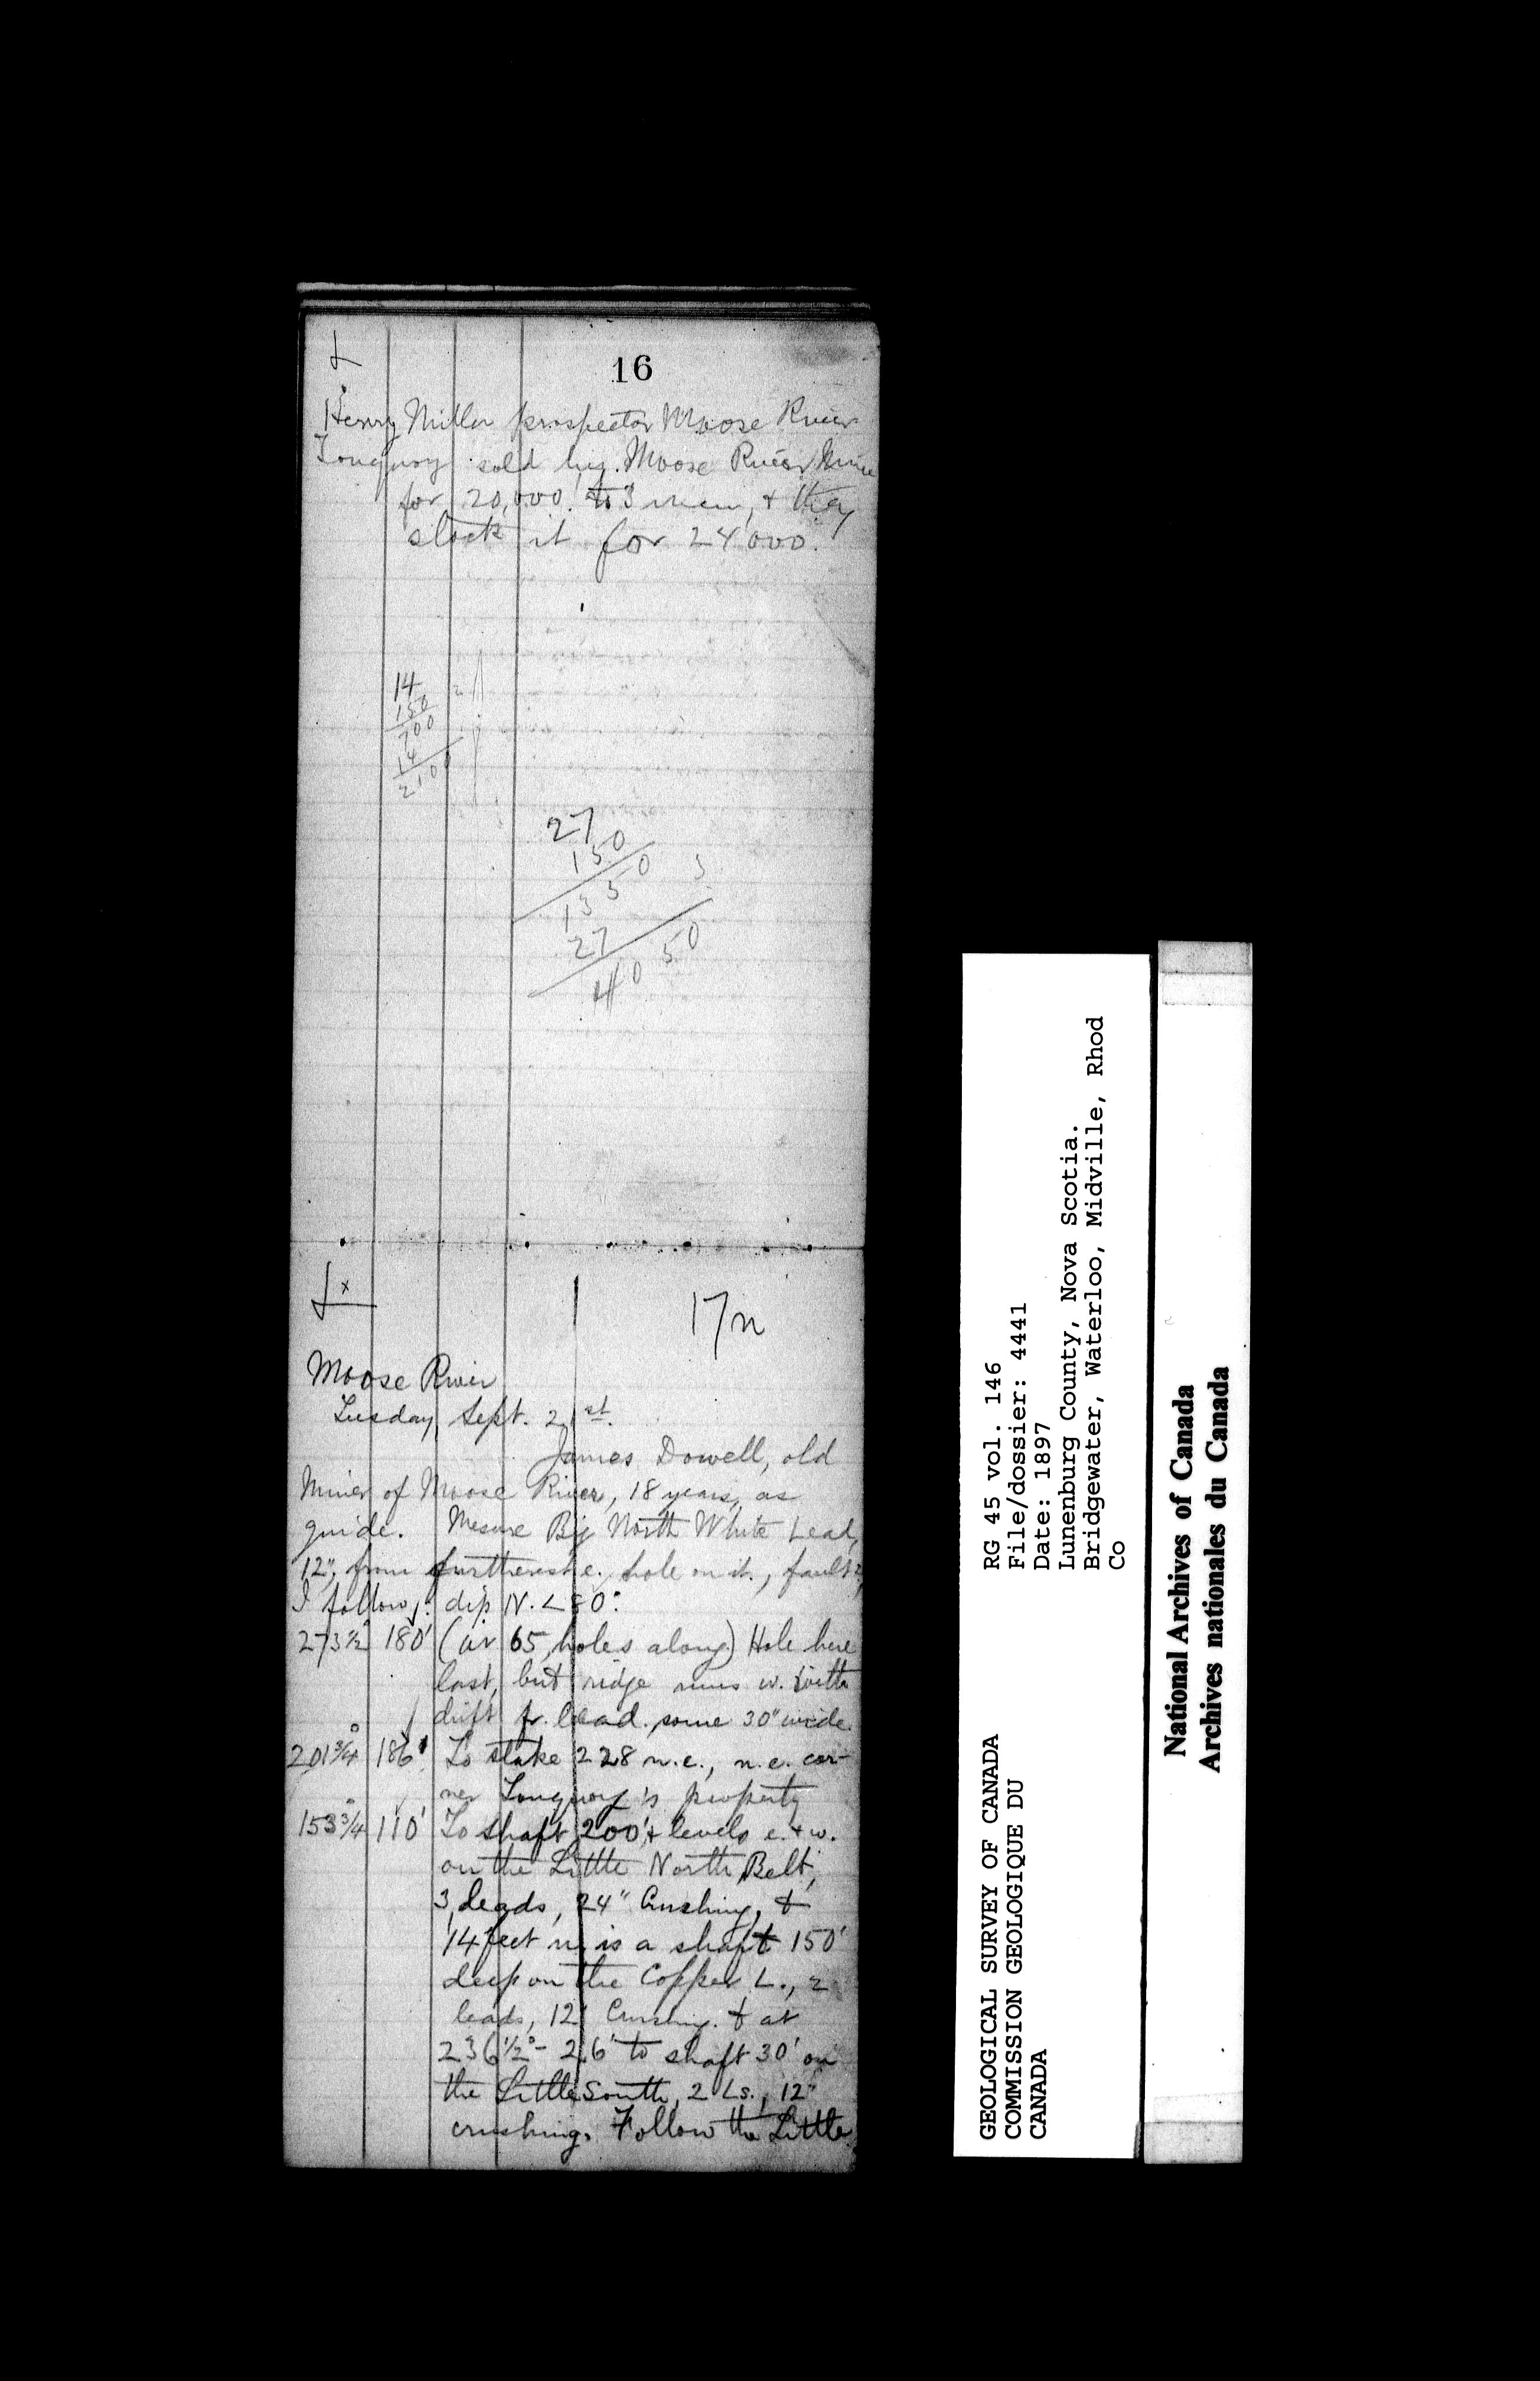 16
Henry Miller prospector Moose River
Touquoy sold his Moose River Mine
for 20,000 to 3 men, & they
stock it for 24000.
14
150
700
14
2100
27
150
1350
27
4050
17n
Moose River
Tuesday, Sept. 21st.
James Dowell, old
miner of Moose River, 18 years, as
guide. Mesure Big North White Lead,
12", from furtherest e. hole on it, fault
I follow, dip N. < 80°.
273½° 180' (air 65 holes along) Hole here
last, but ridge runs w. with
drift fr. lead. some 30" wide.
201¾° 186' To stake 228 n.e., n.e. cor-
ner Touquoy's property
153¾° 110' To shaft 200' & levels e. & w.
on the Little North Belt,
3 leads, 24" Crushing, &
14 feet n. is a shaft 150'
deep on the Copper L., 2
leads, 12" Crushing. & at
236½° - 26' to shaft 30' on
the Little South, 2 Ls., 12"
crushing. Follow the Little
GEOLOGICAL SURVEY OF CANADA
COMMISSION GEOLOGIQUE DU
CANADA
RG 45 vol. 146
File/dossier: 4441
Date: 1897
Lunenburg County, Nova Scotia.
Bridgewater, Waterloo, Midville, Rhod
Co
National Archives of Canada
Archives nationales du Canada